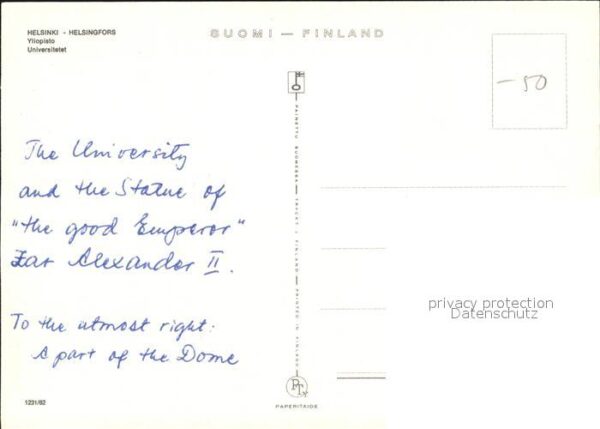 HELSINKI - HELSINGFORS
Yliopisto
Universitetet
SUOMI — FINLAND
— 50
The University
and the Statue of
"the good Emperor"
Zar Alexander II.
To the utmost right:
A part of the Dome
PAINETTU SUOMESSA — TRYCKT I FINLAND — PRINTED IN FINLAND
privacy protection
Datenschutz
PTy
PAPERITAIDE
1231/82